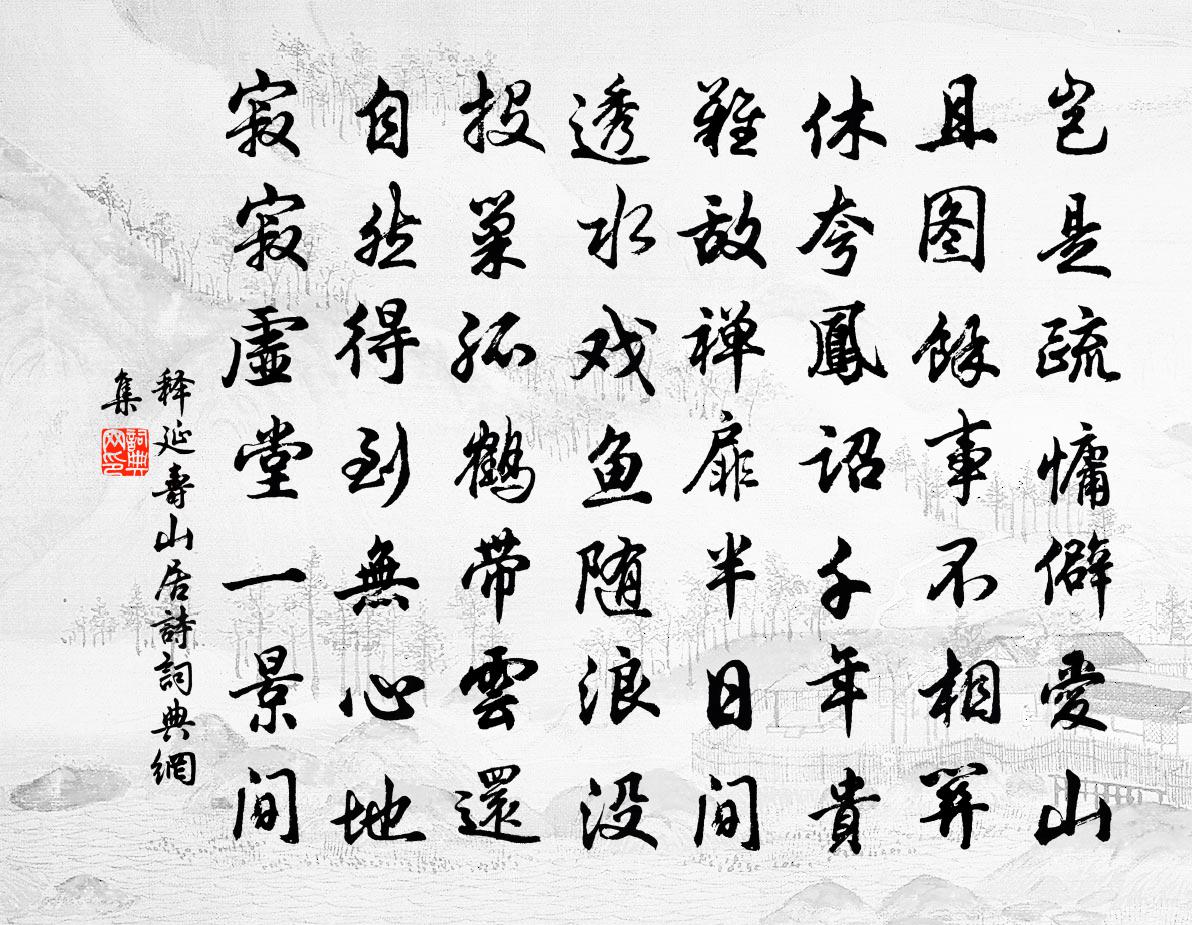 岂是疏慵僻爱山
且图馀事不相关
休夸凤诏千年贵
难敌禅扉半日间
透水戏鱼随浪没
投巢孤鹤带云还
自然得到无心地
寂寂虚堂一景间
释延寿山居诗词典网
集
詞典网印